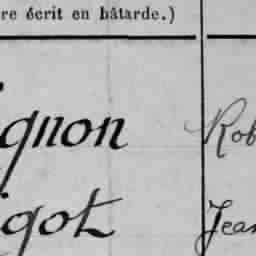 re écrit en bâtarde.)
gnon Rob
igot Jean